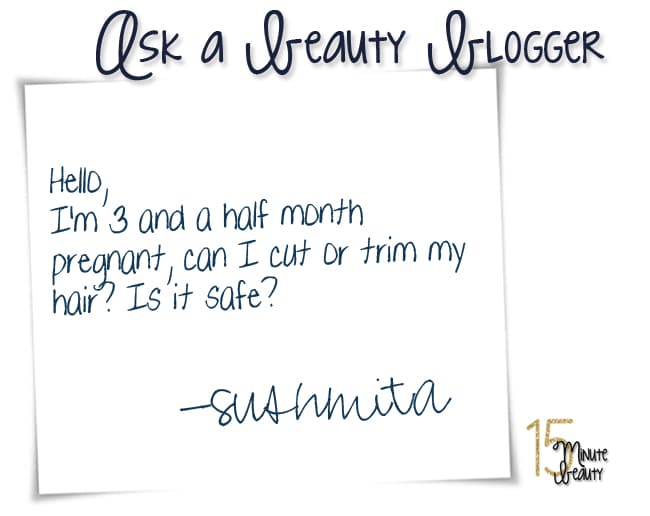 Ask a Beauty Blogger
Hello,
I'm 3 and a half month
pregnant, can I cut or trim my
hair? Is it safe?
-sushmita
15
Minute
Beauty